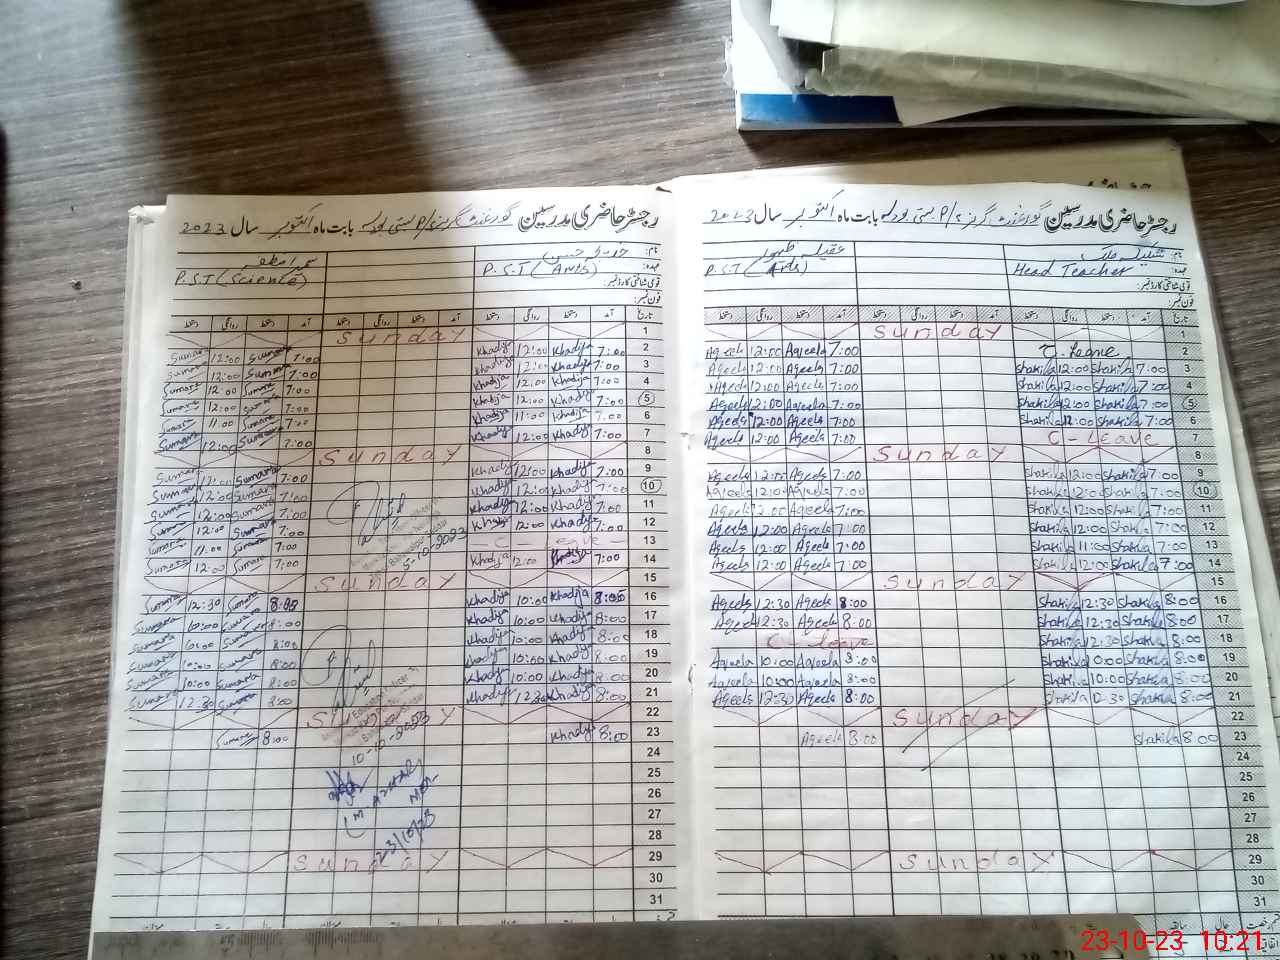 رجسٹر حاضری مدرسین گورنمنٹ گرلز P/S بستی بابت ماہ اکتوبر سال 2023
نام:
عہدہ: P.S.T (Arts) P.S.T (Science)
قومی شناختی کارڈ نمبر:
فون نمبر:
تاریخ آمد دستخط روانگی دستخط آمد دستخط روانگی دستخط آمد دستخط روانگی دستخط
1 Sunday
2 7:00 Khadija 12:00 Khadija 7:00 Sumara 12:00 Sumara
3 7:00 Khadija 12:00 Khadija 7:00 Sumara 12:00 Sumara
4 7:00 Khadija 12:00 Khadija 7:00 Sumara 12:00 Sumara
5 7:00 Khadija 12:00 Khadija 7:00 Sumara 12:00 Sumara
6 7:00 Khadija 11:00 Khadija 7:00 Sumara 11:00 Sumara
7 7:00 Khadija 12:00 Khadija 7:00 Sumara 12:00 Sumara
8 Sunday
9 7:00 Khadija 12:00 Khadija 7:00 Sumara 12:00 Sumara
10 7:00 Khadija 12:00 Khadija 7:00 Sumara 12:00 Sumara
11 7:00 Khadija 12:00 Khadija 7:00 Sumara 12:00 Sumara
12 7:00 Khadija 12:00 Khadija 7:00 Sumara 12:00 Sumara
13 7:00 Sumara 11:00 Sumara
14 7:00 Khadija 12:00 Khadija 7:00 Sumara 12:00 Sumara
15 Sunday
16 8:00 Khadija 10:00 Khadija 8:00 Sumara 12:30 Sumara
17 8:00 Khadija 10:00 Khadija 8:00 Sumara 10:00 Sumara
18 8:00 Khadija 10:00 Khadija 8:00 Sumara 10:00 Sumara
19 8:00 Khadija 10:00 Khadija 8:00 Sumara 10:00 Sumara
20 8:00 Khadija 10:00 Khadija 8:00 Sumara 10:00 Sumara
21 8:00 Khadija 12:30 Khadija 8:00 Sumara 12:30 Sumara
22 Sunday
23 8:00 Khadija 8:00 Sumara
10-10-2023
24
25
26
27
28
23/10/23
29 Sunday
30
31
رجسٹر حاضری مدرسین گورنمنٹ گرلز P/S بستی بابت ماہ اکتوبر سال 2023
نام:
عہدہ: Head Teacher P.S.T (Arts)
قومی شناختی کارڈ نمبر:
فون نمبر:
تاریخ آمد دستخط روانگی دستخط آمد دستخط روانگی دستخط آمد دستخط روانگی دستخط
1 Sunday
2 C. Leave 7:00 Aqeela 12:00 Aqeela
3 7:00 Shakila 12:00 Shakila 7:00 Aqeela 12:00 Aqeela
4 7:00 Shakila 12:00 Shakila 7:00 Aqeela 12:00 Aqeela
5 7:00 Shakila 12:00 Shakila 7:00 Aqeela 12:00 Aqeela
6 7:00 Shakila Shakila 7:00 Aqeela 12:00 Aqeela
7 C-Leave 7:00 Aqeela 12:00 Aqeela
8 Sunday
9 7:00 Shakila 12:00 Shakila 7:00 Aqeela 12:00 Aqeela
10 7:00 Shakila 12:00 Shakila 7:00 Aqeela 12:00 Aqeela
11 7:00 Shakila 12:00 Shakila 7:00 Aqeela 12:00 Aqeela
12 7:00 Shakila 12:00 Shakila 7:00 Aqeela 12:00 Aqeela
13 7:00 Shakila 11:00 Shakila 7:00 Aqeela 12:00 Aqeela
14 7:00 Shakila 12:00 Shakila 7:00 Aqeela 12:00 Aqeela
15 Sunday
16 8:00 Shakila 12:30 Shakila 8:00 Aqeela 12:30 Aqeela
17 8:00 Shakila 12:30 Shakila 8:00 Aqeela 12:30 Aqeela
18 8:00 Shakila 12:30 Shakila C-Leave
19 8:00 Shakila 10:00 Shakila 8:00 Aqeela 10:00 Aqeela
20 8:00 Shakila 10:00 Shakila 8:00 Aqeela 10:00 Aqeela
21 8:00 Shakila 12:30 Shakila 8:00 Aqeela 12:30 Aqeela
22 Sunday
23 8:00 Shakila 8:00 Aqeela
24
25
26
27
28
29 Sunday
30
31
23-10-23 10:21